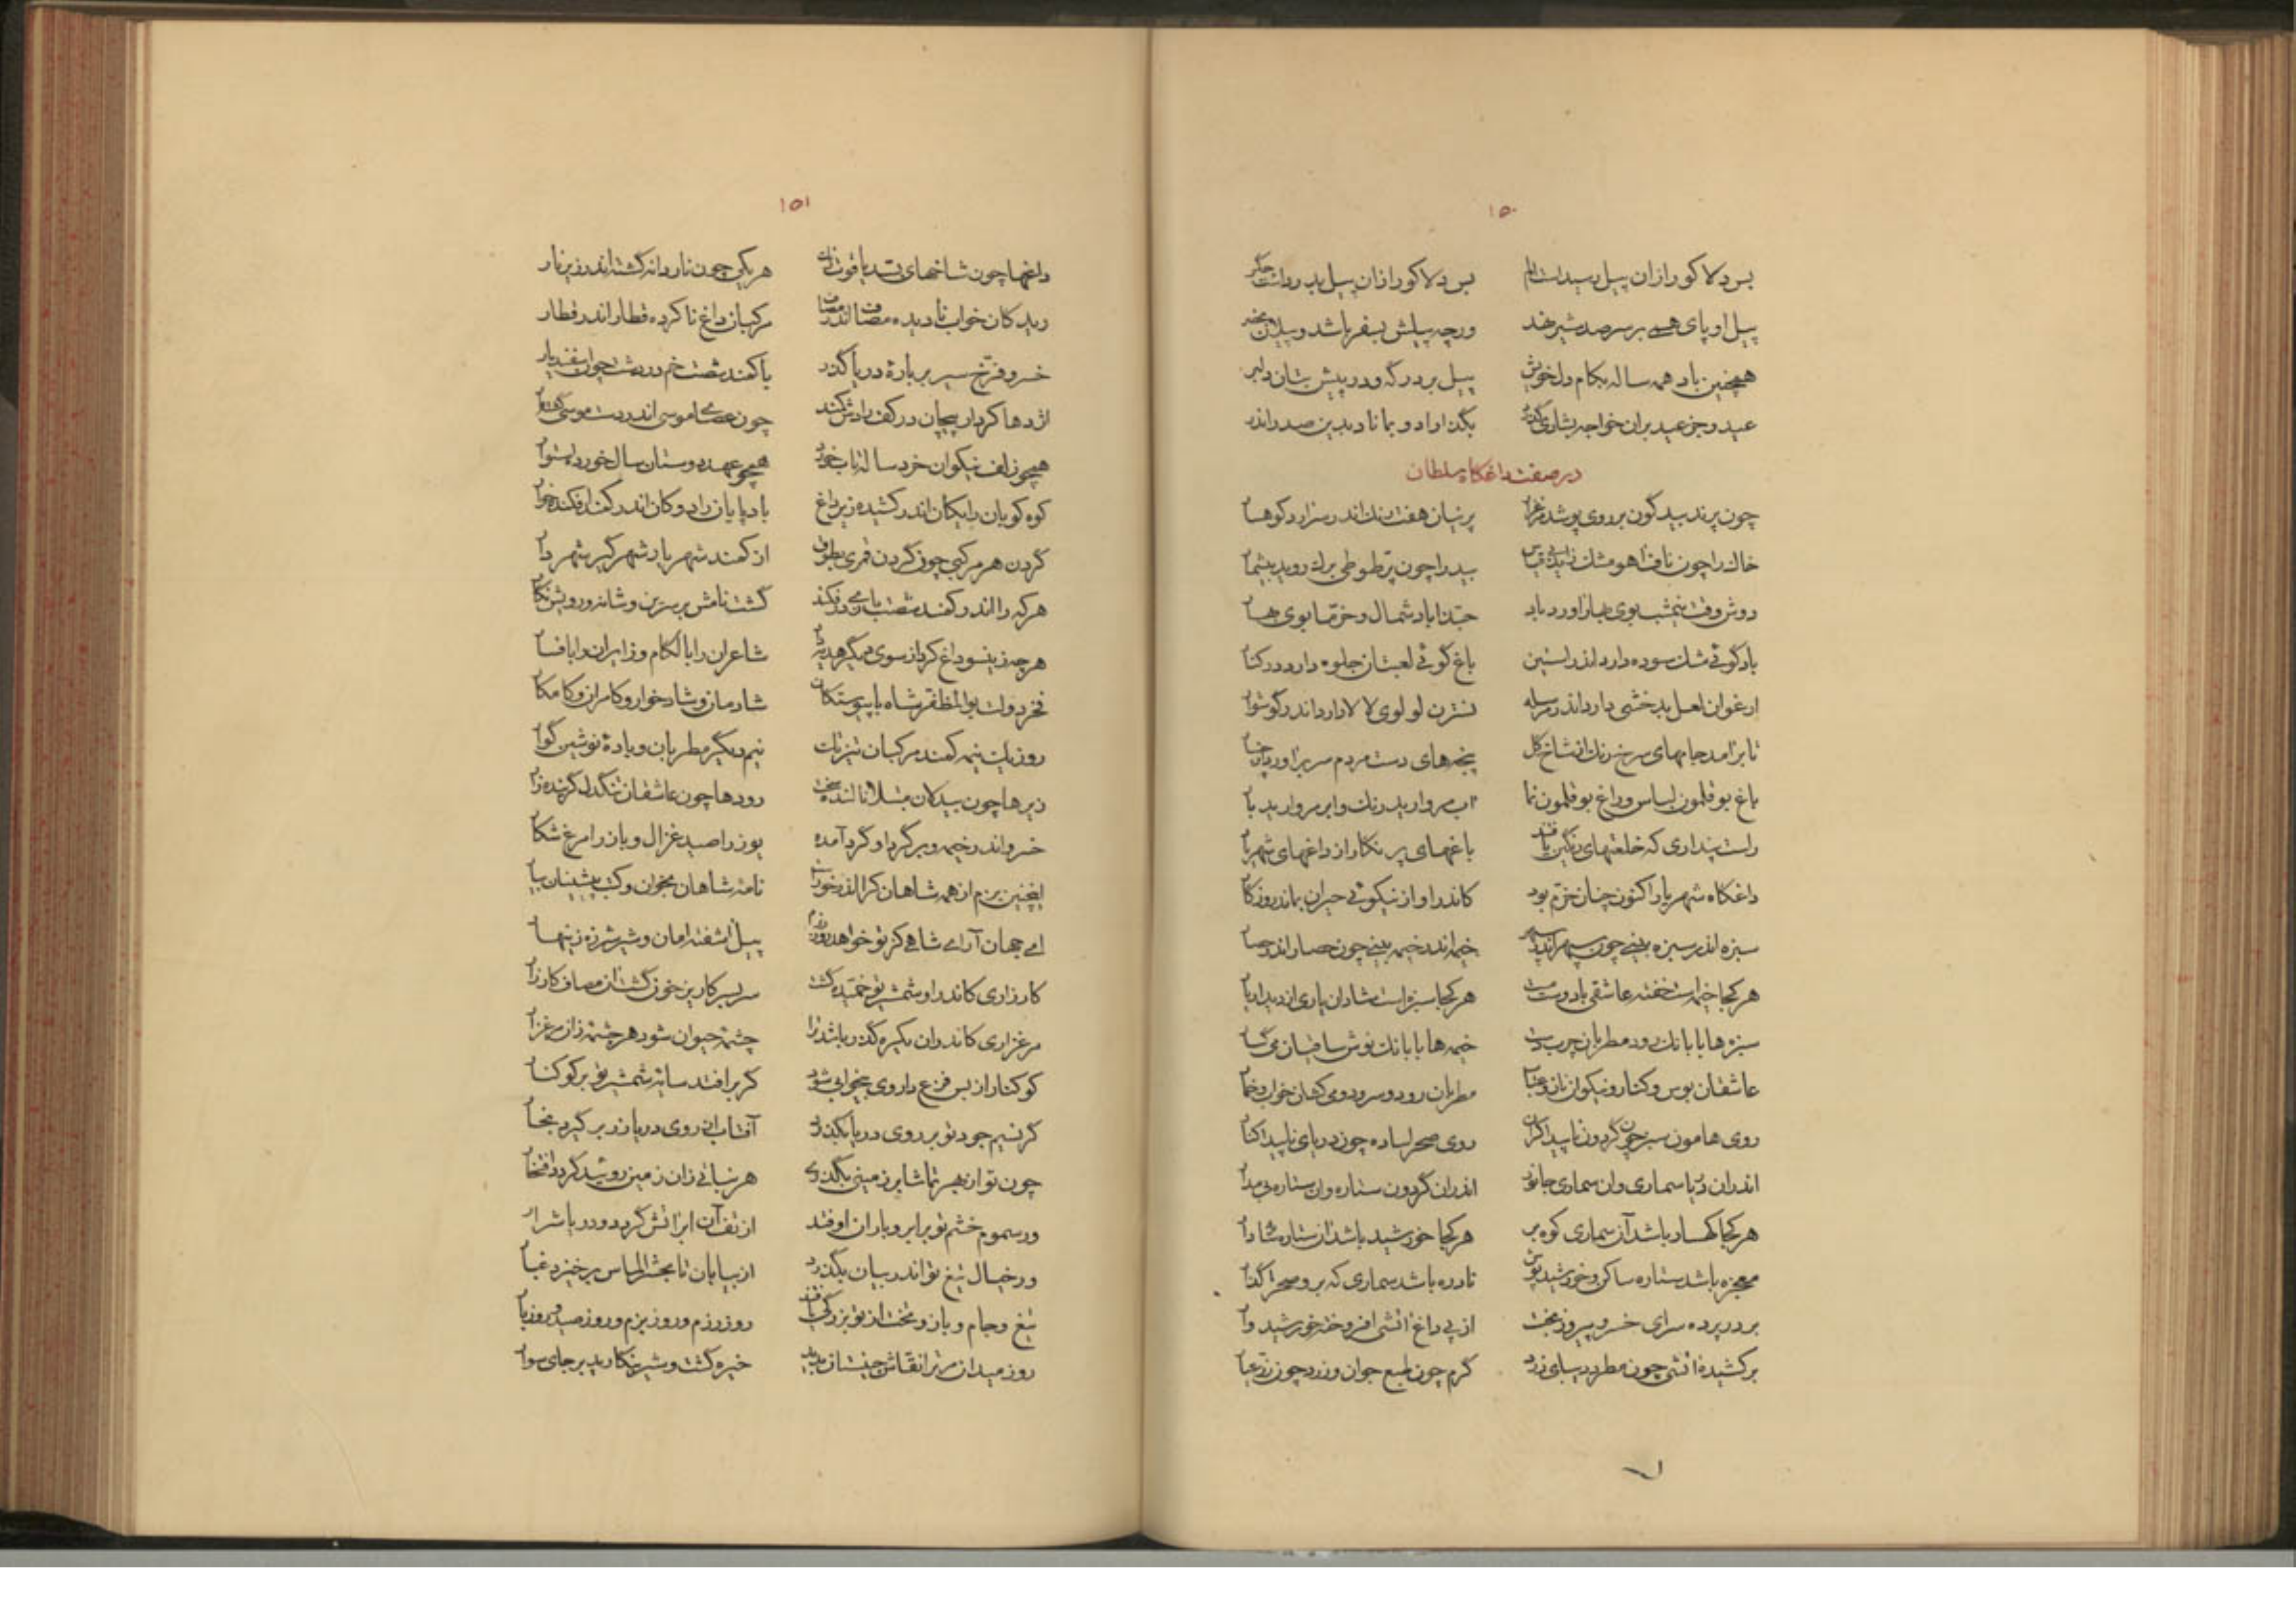 ۱۵۰
بس دلا کو را از ان پیل رسیدست الم بس دلا کو را ازان پیل بدرد است جگر
پیل او پای همی بر سر صد شیر نهد ورچه پیلش بسفر باشد و پیلان بحضر
همچنین باد همه ساله بکام دل خویش پیل بر درگه و در پیش بتان دلبر
عید و جز عید بران خواجه بشادی گذرد بگذاراد و بماناد بدین صدر اندر
در صفت داغگاه سلطان
چون پرند بیدگون بر روی پوشد مرغزار پرنیان هفت رنگ اندر سر ارد کوهسار
خاک را چون ناف اهو مشک زاید بی قیاس بید را چون پر طوطی برگ روید بیشمار
دوش وقت نیمشب بوی بهار اورد باد حبذا باد شمال و خرما بوی بهار
باد گوئی مشک سوده دارد اندر استین باغ گوئی لعبتان جلوه دارد در کنار
ارغوان لعل بدخشی دارد اندر مرسله نسترن لولوی لالا دارد اندر گوشوار
تا برامد جامهای سرخ رنگ از شاخ گل پنجه‌های دست مردم سر براورد از چنار
باغ بوقلمون لباس و راغ بوقلمون نما اب مروارید رنگ و ابر مروارید بار
راست پنداری که خلعتهای رنگین یافتند باغهای پر نگار از داغهای شهریار
داغگاه شهریار اکنون چنان خرم بود کاندر او از نیکوئی حیران بماند روزگار
سبزه اندر سبزه بینی چون سپهر اندر سپهر خیمه اندر خیمه بینی چون حصار اندر حصار
هر کجا خیمه است خفته عاشقی با دوست مست هر کجا سبزه است شادان یاری از دیدار یار
سبزه‌ها با بانک رود مطربان چرب دست خیمه‌ها با بانک نوش ساقیان می گسار
عاشقان بوس و کنار و نیکوان ناز و عتاب مطربان رود و سرود و می کشان خواب و خمار
روی هامون سبز چون گردون ناپیدا کران روی صحرا ساده چون دریای ناپیدا کنار
اندران دریا سماری وان سماری جانور اندران گردون ستاره وان ستاره بی مدار
هر کجا کهسار باشد آن سماری کوه بر هر کجا خورشید باشد ان ستاره شادار
معجزه باشد ستاره ساکن و خورشید پوش نادره باشد سماری که بر و صحرا گذار
بر در پرده سرای خسرو پیروز بخت از پی داغ اتشی افروخته خورشید وار
برکشیده اتشی چون مطرد دیبای زرد گرم چون طبع جوان و زرد چون زر عیار
۱۵۱
داغها چون شاخهای بسد یاقوت رنگ هر یکی چون ناردانه گشته اندر زیر نار
ریدکان خواب نادیده مصاف اندر مصاف مرکبان داغ ناکرده قطار اندر قطار
خسرو فرخ سیر بر باره دریا گذر با کمند شصت خم در دشت چون اسفندیار
اژدها کردار پیچان در کف رادش کمند چون عصای موسی اندر دست موسی گشته مار
همچو زلف نیکوان خرد ساله تاب خورد همچو عهد دوستان سال خورد استوار
کوه کوبان را یکان اندر کشیده زیر داغ بادپایان را دوگان اندر کمند افکنده خوار
گردن هر مرکبی چون گردن قمری بطوق از کمند شهریار شهر گیر شهر دار
هر که را اندر کمند شصت بازی در فکند گشت نامش بر سرین و شانه و رویش نگار
هر چه زینسو داغ کرد از سوی دیگر هدیه داد شاعران را با لگام و زایران را با فسار
فخر دولت بوالمظفر شاه با پیوستگان شادمان و شاد خوار و کامران و کامکار
روز یک نیمه کمند و مرکبان تیز تک نیم دیگر مطربان و باده نوشین گوار
زیرها چون بیدلان مبتلا نالنده سخت رودها چون عاشقان تنگدل گرینده زار
خسرو اندر خیمه و بر گرد او گرد آمده یوز را صید غزال و باز را مرغ شکار
اینچنین بزم از همه شاهان کرا اندر خورد است نامه شاهان بخوان و کتب پیشینان بیار
ای جهان آرای شاهی کز تو خواهد روز رزم پیل اشفته امان و شیر شرزه زینهار
کارزاری کاندر او شمشیر تو جنبیده گشت سر بسر کاریز خون گشت ان مصاف کارزار
مرغزاری کاندران یکره گذر باشد ترا چشمه حیوان شود هر چشمه زان مرغزار
کوکنار از بس فزع داروی بیخوابی شود گر برافتد سایه شمشیر تو بر کوکنار
گر نسیم جود تو بر روی دریا بگذرد آفتاب از روی دریا زر برگیرد بخار
چون تو از بهر تماشا بر زمینی بگذری هر نباتی زان زمین روید کرد افتخار
ور سموم خشم تو بر ابر و باران اوفتد از تف آن ابر اتش گردد و دریا شرار
ور خیال تیغ تو اندر بیابان بگذرد از بیابان تا بحشر الماس برخیزد غبار
تیغ و جام و باز و تخت از تو بزرگی یافتند روز رزم و روز بزم و روز صید و روز بار
روز میدان مر ترا نقاش چینستان بدید خیره گشت و شیر بنگارید بر جای سوار